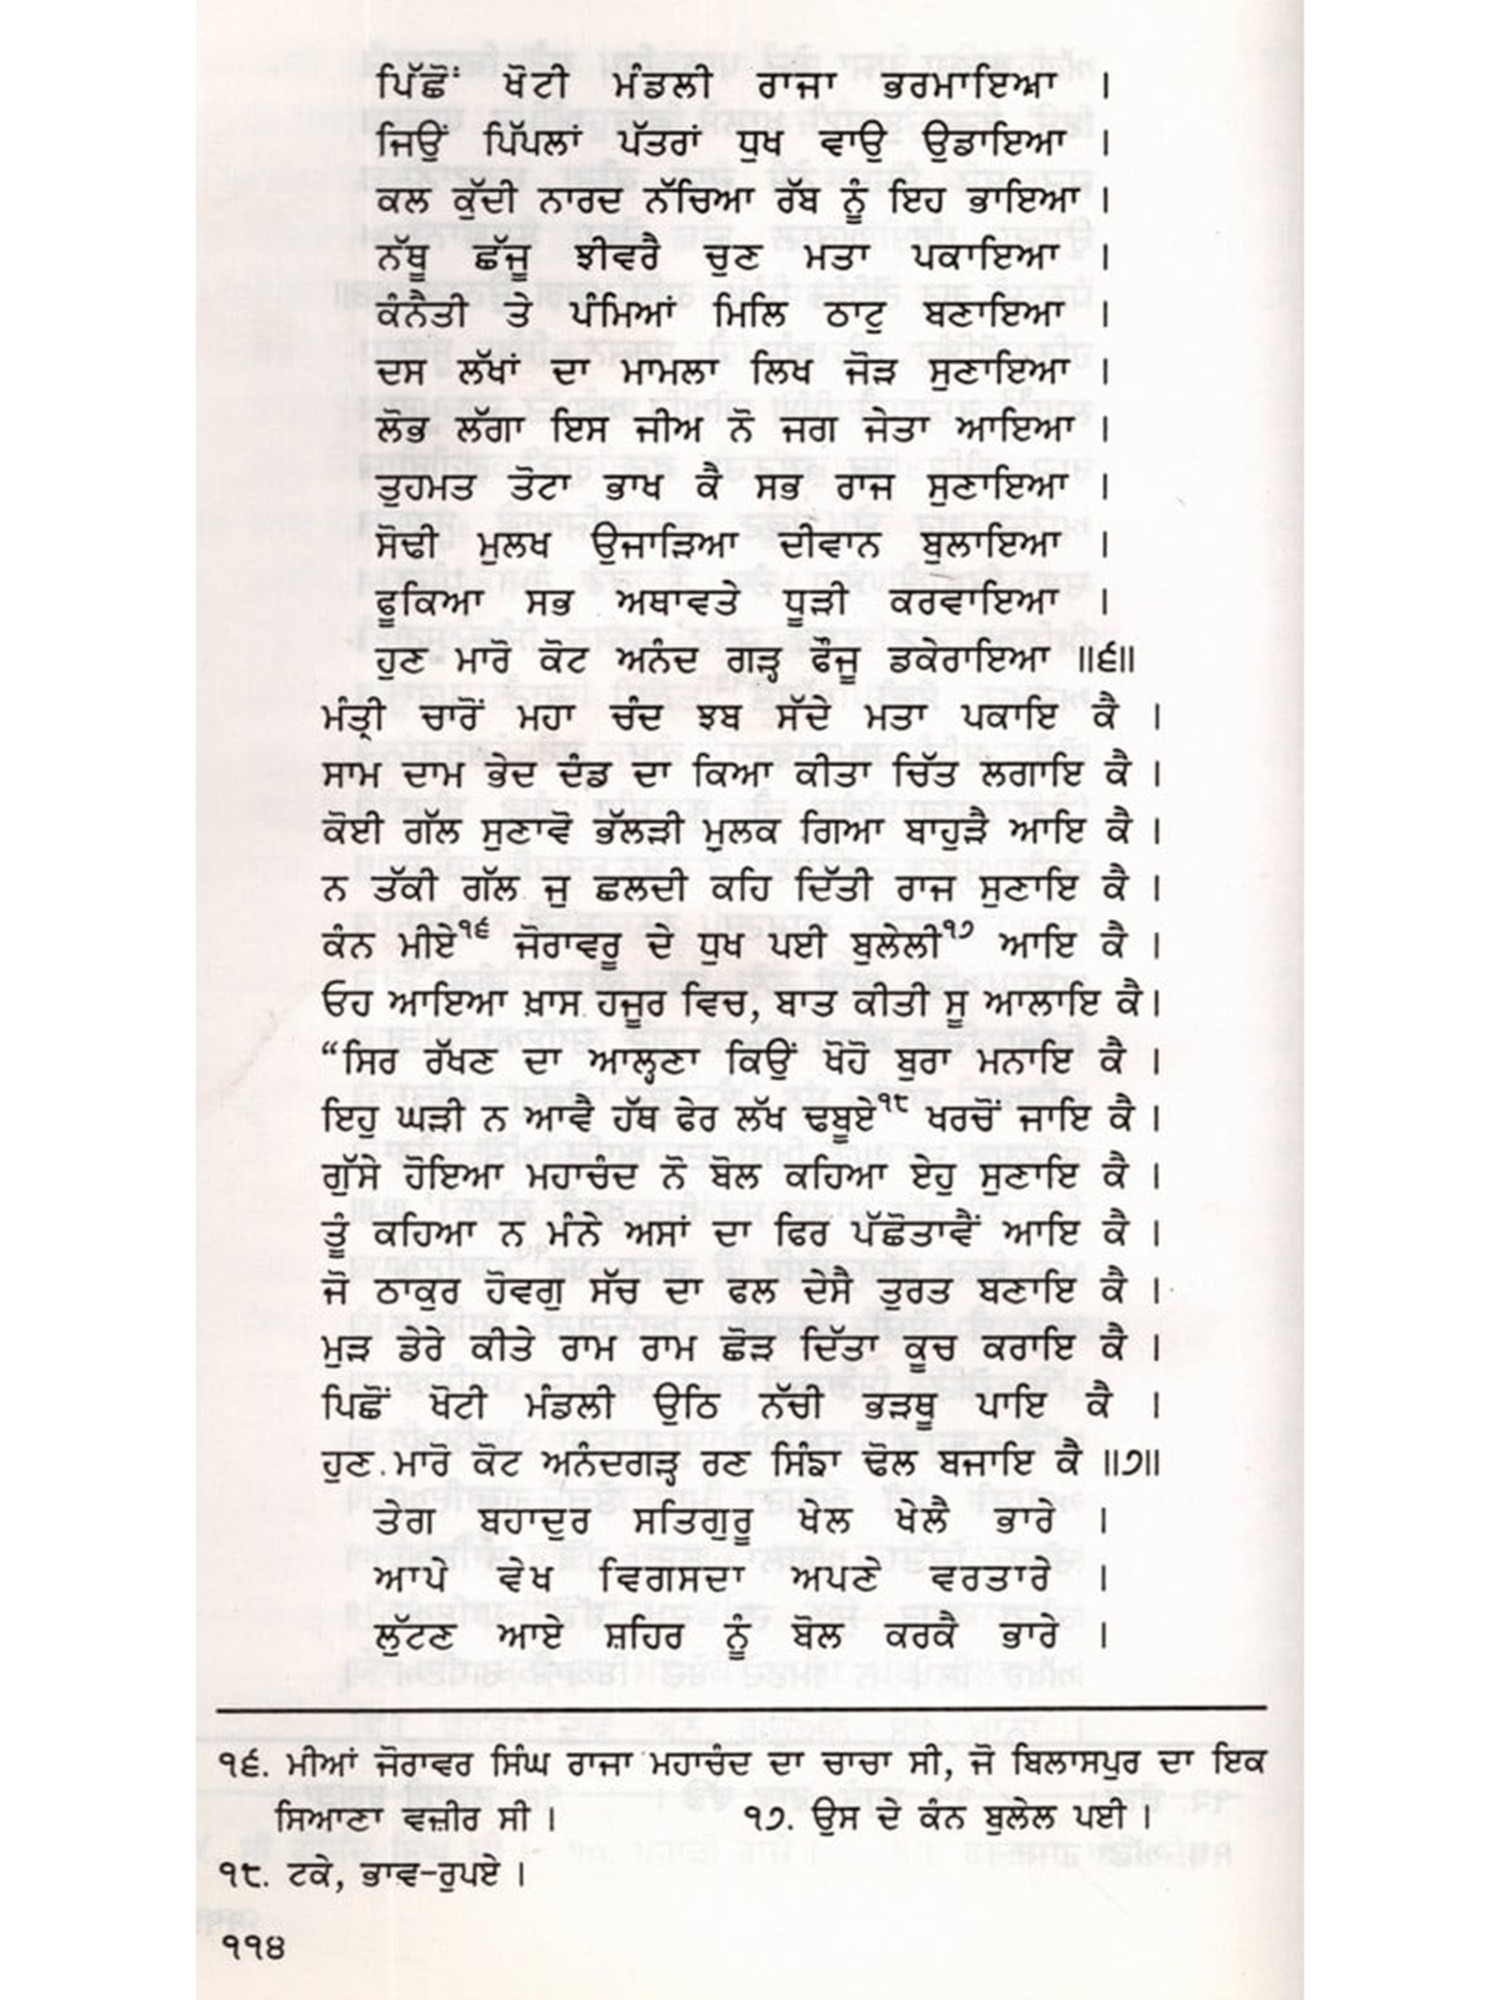 ਪਿੱਛੋਂ ਖੋਟੀ ਮੰਡਲੀ ਰਾਜਾ ਭਰਮਾਇਆ ।
ਜਿਉਂ ਪਿੱਪਲਾਂ ਪੱਤਰਾਂ ਧੁਖ ਵਾਉ ਉਡਾਇਆ ।
ਕਲ ਕੁੱਦੀ ਨਾਰਦ ਨੱਚਿਆ ਰੱਬ ਨੂੰ ਇਹ ਭਾਇਆ ।
ਨੱਥੂ ਛੱਜੂ ਝੀਵਰੈ ਚੁਣ ਮਤਾ ਪਕਾਇਆ ।
ਕੰਨੈਤੀ ਤੇ ਪੰਮਿਆਂ ਮਿਲਿ ਠਾਟੁ ਬਣਾਇਆ ।
ਦਸ ਲੱਖਾਂ ਦਾ ਮਾਮਲਾ ਲਿਖ ਜੋੜ ਸੁਣਾਇਆ ।
ਲੋਭ ਲੱਗਾ ਇਸ ਜੀਅ ਨੋ ਜਗ ਜੇਤਾ ਆਇਆ ।
ਤੁਹਮਤ ਤੋਟਾ ਭਾਖ ਕੈ ਸਭ ਰਾਜ ਸੁਣਾਇਆ ।
ਸੋਢੀ ਮੁਲਖ ਉਜਾੜਿਆ ਦੀਵਾਨ ਬੁਲਾਇਆ ।
ਫੂਕਿਆ ਸਭ ਅਥਾਵਤੇ ਧੂੜੀ ਕਰਵਾਇਆ ।
ਹੁਣ ਮਾਰੋ ਕੋਟ ਅਨੰਦ ਗੜ੍ਹ ਫੌਜੂ ਡਕੇਰਾਇਆ ॥੬॥
ਮੰਤ੍ਰੀ ਚਾਰੋਂ ਮਹਾ ਚੰਦ ਝਬ ਸੱਦੇ ਮਤਾ ਪਕਾਇ ਕੈ ।
ਸਾਮ ਦਾਮ ਭੇਦ ਦੰਡ ਦਾ ਕਿਆ ਕੀਤਾ ਚਿੱਤ ਲਗਾਇ ਕੈ ।
ਕੋਈ ਗੱਲ ਸੁਣਾਵੋ ਭੱਲੜੀ ਮੁਲਕ ਗਿਆ ਬਾਹੁੜੈ ਆਇ ਕੈ ।
ਨ ਤੱਕੀ ਗੱਲ ਜੁ ਛਲਦੀ ਕਹਿ ਦਿੱਤੀ ਰਾਜ ਸੁਣਾਇ ਕੈ ।
ਕੰਨ ਮੀਏ੧੬ ਜੋਰਾਵਰੂ ਦੇ ਧੁਖ ਪਈ ਬੁਲੇਲੀ੧੭ ਆਇ ਕੈ ।
ਓਹ ਆਇਆ ਖ਼ਾਸ ਹਜੂਰ ਵਿਚ, ਬਾਤ ਕੀਤੀ ਸੂ ਆਲਾਇ ਕੈ।
“ਸਿਰ ਰੱਖਣ ਦਾ ਆਲ੍ਹਣਾ ਕਿਉਂ ਖੋਹੋ ਬੁਰਾ ਮਨਾਇ ਕੈ ।
ਇਹੁ ਘੜੀ ਨ ਆਵੈ ਹੱਥ ਫੇਰ ਲੱਖ ਢਬੂਏ੧੮ ਖਰਚੋਂ ਜਾਇ ਕੈ ।
ਗੁੱਸੇ ਹੋਇਆ ਮਹਾਚੰਦ ਨੋ ਬੋਲ ਕਹਿਆ ਏਹੁ ਸੁਣਾਇ ਕੈ ।
ਤੂੰ ਕਹਿਆ ਨ ਮੰਨੇ ਅਸਾਂ ਦਾ ਫਿਰ ਪੱਛੋਤਾਵੈਂ ਆਇ ਕੈ ।
ਜੋ ਠਾਕੁਰ ਹੋਵਗੁ ਸੱਚ ਦਾ ਫਲ ਦੇਸੈ ਤੁਰਤ ਬਣਾਇ ਕੈ ।
ਮੁੜ ਡੇਰੇ ਕੀਤੇ ਰਾਮ ਰਾਮ ਛੋੜ ਦਿੱਤਾ ਕੂਚ ਕਰਾਇ ਕੈ ।
ਪਿਛੋਂ ਖੋਟੀ ਮੰਡਲੀ ਉਠਿ ਨੱਚੀ ਭੜਥੂ ਪਾਇ ਕੈ ।
ਹੁਣ ਮਾਰੋ ਕੋਟ ਅਨੰਦਗੜ੍ਹ ਰਣ ਸਿੰਙਾ ਢੋਲ ਬਜਾਇ ਕੈ ॥੭॥
ਤੇਗ ਬਹਾਦੁਰ ਸਤਿਗੁਰੂ ਖੇਲ ਖੇਲੈ ਭਾਰੇ ।
ਆਪੇ ਵੇਖ ਵਿਗਸਦਾ ਅਪਣੇ ਵਰਤਾਰੇ ।
ਲੁੱਟਣ ਆਏ ਸ਼ਹਿਰ ਨੂੰ ਬੋਲ ਕਰਕੈ ਭਾਰੇ ।
੧੬. ਮੀਆਂ ਜੋਰਾਵਰ ਸਿੰਘ ਰਾਜਾ ਮਹਾਚੰਦ ਦਾ ਚਾਚਾ ਸੀ, ਜੋ ਬਿਲਾਸਪੁਰ ਦਾ ਇਕ
ਸਿਆਣਾ ਵਜ਼ੀਰ ਸੀ । ੧੭. ਉਸ ਦੇ ਕੰਨ ਬੁਲੇਲ ਪਈ ।
੧੮. ਟਕੇ, ਭਾਵ-ਰੁਪਏ ।
੧੧੪